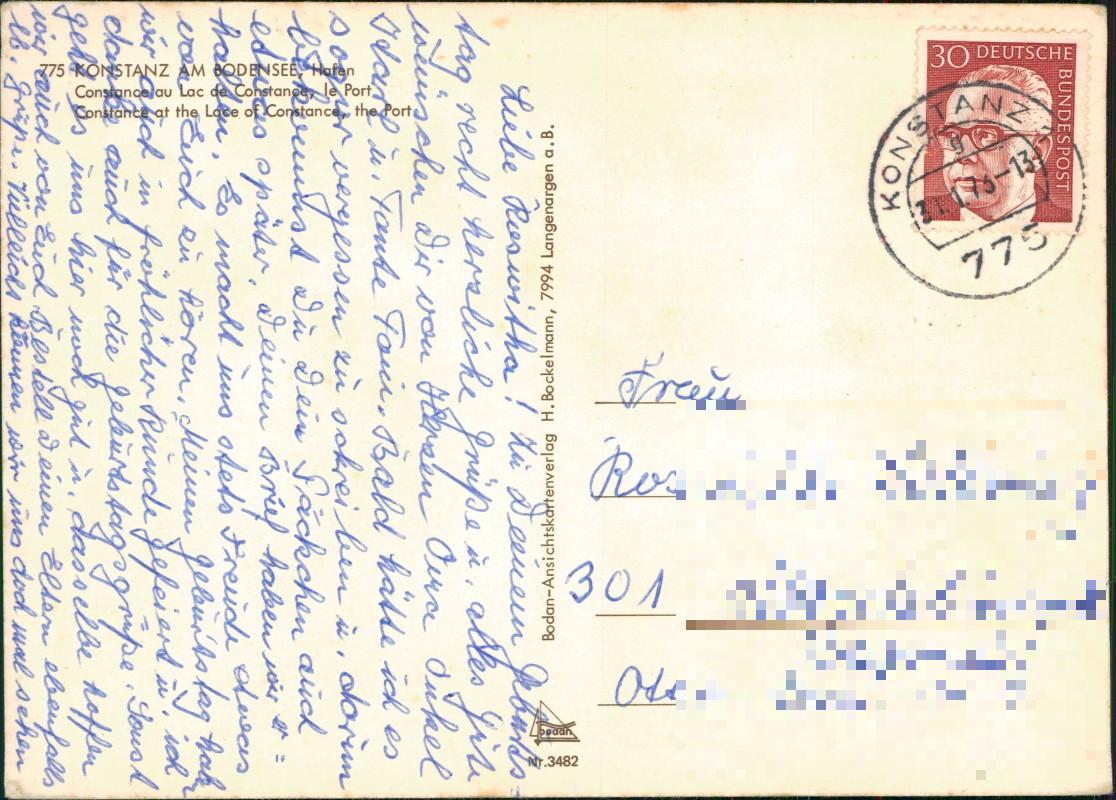 775 KONSTANZ AM BODENSEE, Hafen
Constance au Lac de Constance, le Port
Constance at the Lace of Constance, the Port
Liebe Roswitha! Zu Deinem Geburts-
tag recht herzliche Grüße u. alles Gute
wünschen Dir von Herzen Dein Onkel
u. Tante Toni. Bald hätte ich es
sogar vergessen zu schreiben u. darum
bekommst Du Dein Päckchen auch
etwas später. Deinen Brief haben wir er=
halten. Es macht uns stets Freude etwas
von Euch zu hören. Meinen Geburtstag hab
wir auch in fröhlicher Runde gefeiert u. ich
danke auch für die Geburtstagsgrüße. Sonst
geht's uns hier noch gut u. dasselbe hoffen
wir auch von Euch. Bestell Deinen Eltern ebenfalls
lb. Grüße. Vielleicht können wir uns doch mal sehen
Bodan-Ansichtskartenverlag H. Bockelmann, 7994 Langenargen a. B.
bodan
Nr.3482
30 DEUTSCHE BUNDESPOST
KONSTANZ
775
Frau
Ros
301